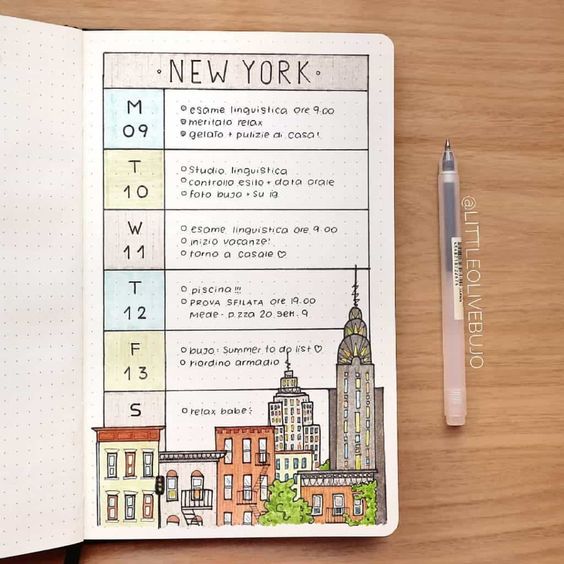 · NEW YORK ·
M
09
esame linguistica ore 9.00
meritato relax
gelato + pulizie di casa!
T
10
studio linguistica
controllo esito + data orale
foto bujo + su ig
W
11
esame linguistica ore 9.00
inizio vacanze!
torno a casale ♡
T
12
piscina!!!
PROVA SFILATA ORE 19.00
Mede - p.zza 20 sett. 9
F
13
bujo: summer to do list ♡
riordino armadio
S
relax babe!
@LITTLEOLIVEBUJO